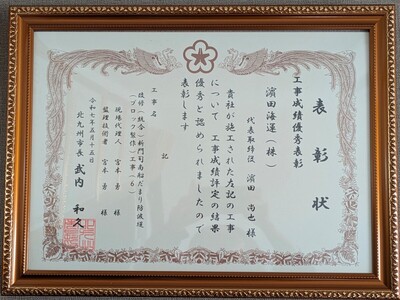 表彰状
工事成績優秀表彰
濱田海運(株)
代表取締役 濱田 尚也 様
貴社が施工された左記の工事
について 工事成績評定の結果
優秀と認められましたので
表彰します
記
工事名
改修(統合)新門司南船だまり防波堤
(ブロック製作)工事(6)
現場代理人 宮本 勇 様
監理技術者 宮本 勇 様
令和七年五月十五日
北九州市長 武内 和久